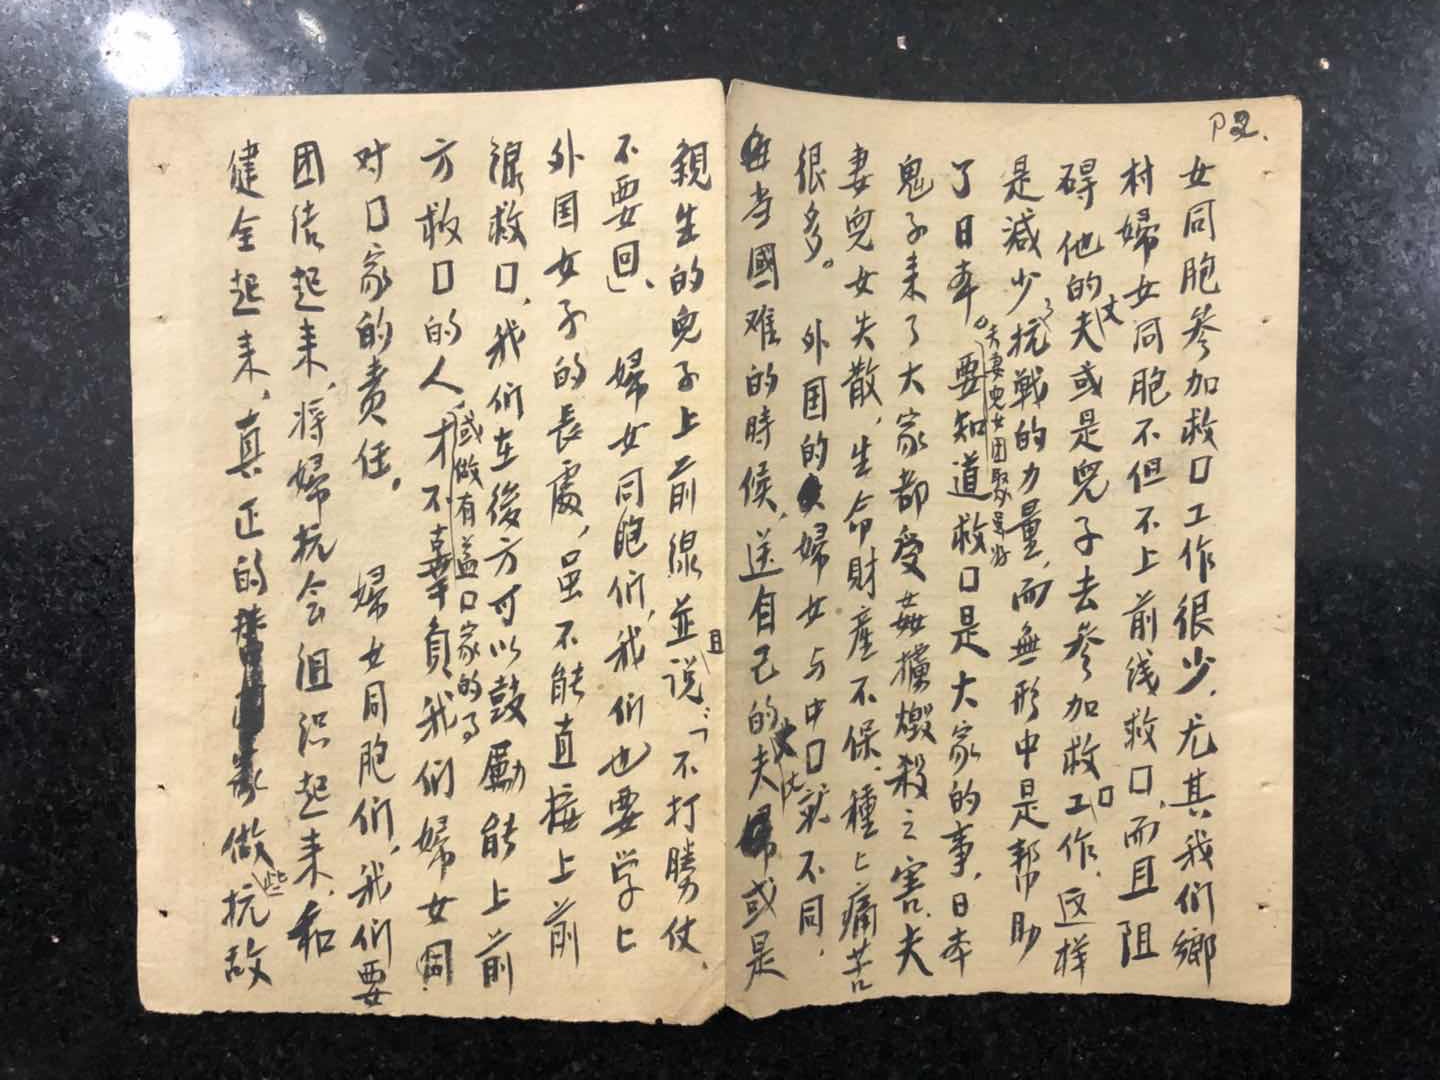 P2.
女同胞参加救口工作很少，尤其我们鄉
村婦女同胞不但不上前线救口，而且阻
碍他的丈夫或是兒子去参加救口工作，这样
是減少了抗戰的力量，而無形中是帮助
了日本。夫妻兒女团聚是要知道救口是大家的事，日本
鬼子来了大家都受姦擄燬殺之害，夫
妻兒女失散，生命財產不保，種々痛苦
很多。外国的婦女与中口就不同，
当國难的時候，送自己的丈夫或是
親生的兒子上前線並且说：「不打勝仗，
不要回」，婦女同胞们，我们也要学々
外国女子的長處，虽不能直接上前
線救口，我们在後方可以鼓勵能上前
方救口的人，或做有益口家的事才不辜負我们婦女同
对口家的責任。婦女同胞们，我们要
团结起来，将婦抗会组织起来，和
健全起来，真正的做些抗敌